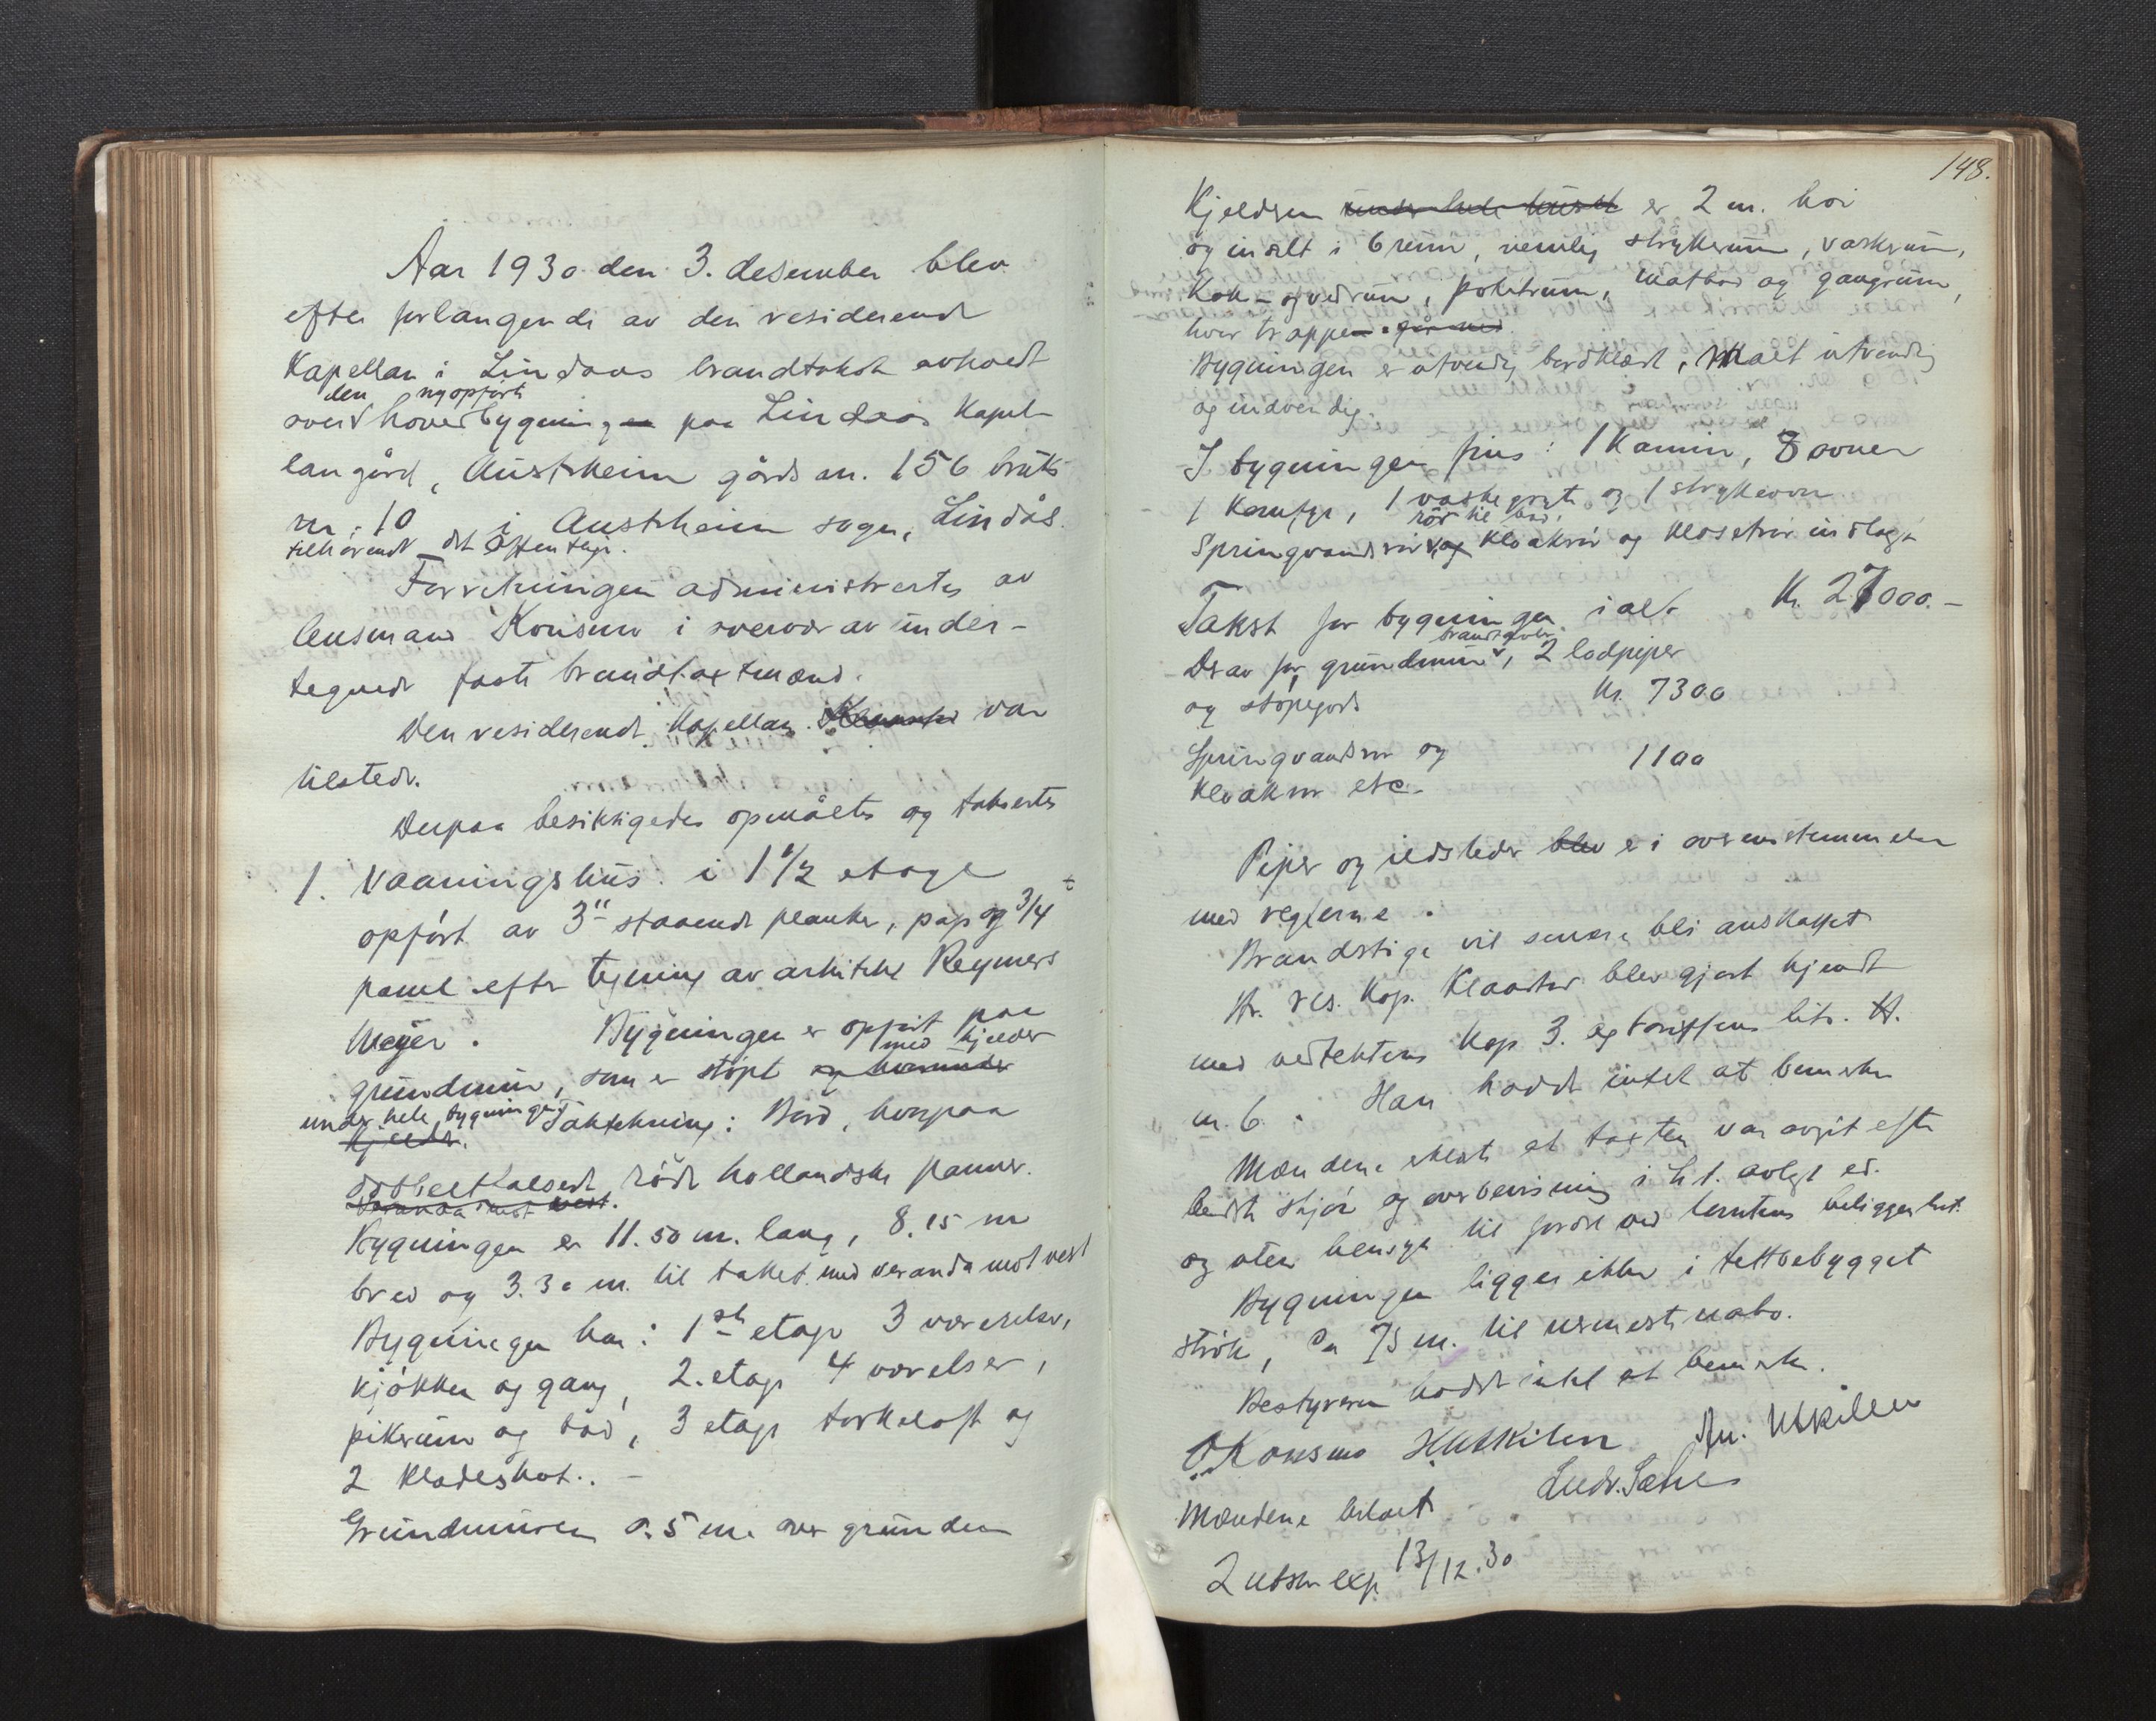 Aar 1930 den 3. desember blev
efter forlangende av den residerende
Kapellan i Lindaas brandtakst avholdt
den nyopførte
over hovedbygningen paa Lindaas Kapel-
langård, Austrheim gårds nr. 156 bruks
nr. 10 i Austrheim sogn, Lindås.
tilhørende det offentlige.
Forretningen administrertes av
lensmand Konsmo i overvær av under-
tegnede faste brandtaxtmænd.
Den residerende Kapellan var
tilstede.
Derpaa besiktigedes opmåltes og taksertes
1. Vaaningshus i 1 1/2 etage
opført av 3" staaende planker, pap og 3/4"
panel efter tegning av arkitekt Reymers
Meyer. Bygningen er opført paa
med kjelder
grundmur, som er støpt og herunder
under hele bygningen
kjelder. Taktekning: Bord, hvorpaa
dobbeltfalsede røde hollandske panner.
Veranda mot vest.
Bygningen er 11.50 m. lang, 8.15 m
bred og 3.30 m. til taket med veranda mot vest
Bygningen har i 1ste etage 3 værelser,
kjøkken og gang, 2. etage 4 værelser,
pikerum og bad, 3 etage tørkeloft og
2 klædeskot. -
Grundmuren 0.5 m. over grunden
148.
Kjelderen under hele huset er 2 m. høi
og indelt i 6 rum, nemlig strykerum, vaskerum,
Kok- og vedrum, potetrum, matbod og gangrum,
hvor trappen går ned.
Bygningen er utvendig bordklædt, malt utvendig
og indvendig.
I bygningen fins: 1 Kamin, 8 ovner
1 Komfyr, 1 vaskegryte og 1 strykeovn
rør til bad,
Springvandsrør og kloakrør og klosetrør indlagt
Takst for bygningen i alt Kr. 27000.-
brandgavler
Derav for grundmur, 2 lodpiper
og støpegods Kr. 7300
Springvandsrør og
Kloakrør etc. 1100
Piper og ildsteder blev er i overensstemmelse
med reglerne.
Brandstige vil senere bli anskaffet
Hr. res. Kap. Klaastad blev gjort kjendt
med vedtektens Kap 3. og tariffens litr. H.
nr. 6. Han hadde intet at bemerke
Mændene erklærte at taxten var avgit efter
bedste skjøn og overbevisning i h.t. avlagt ed.
og uten hensyn til fordel ved tomtens beliggenhet.
Bygningen ligger ikke i tettbebygget
strøk, ca 75 m. til nærmeste nabo.
Bestyreren hadde intet at bemerke.
O Konsmo H Utkilen An. Utkilen
Ludv. Sætre
Mændene betalt
2 utskr. exp. 13/12.30